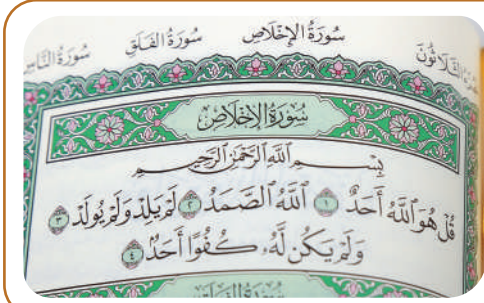 الثَّلَاثُونَ سُورَةُ الإِخْلَاصِ سُورَةُ الفَلَقِ سُورَةُ النَّاسِ
سُورَةُ الإِخْلَاصِ
بِسْمِ اللَّهِ الرَّحْمَٰنِ الرَّحِيمِ
قُلْ هُوَ اللَّهُ أَحَدٌ ١ اللَّهُ الصَّمَدُ ٢ لَمْ يَلِدْ وَلَمْ يُولَدْ ٣
وَلَمْ يَكُن لَّهُۥ كُفُوًا أَحَدٌۢ ٤